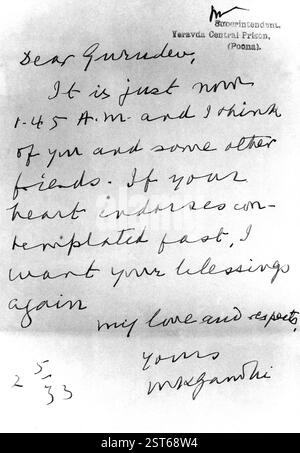 Superintendent.
Yeravda Central Prison,
(Poona).
Dear Gurudev,
It is just now
1.45 A.M. and I think
of you and some other
friends. If your
heart endorses con-
templated fast, I
want your blessings
again
my love and respects,
yours
MKGandhi
2/5/33
alamy
Image ID: 2ST68W4
www.alamy.com